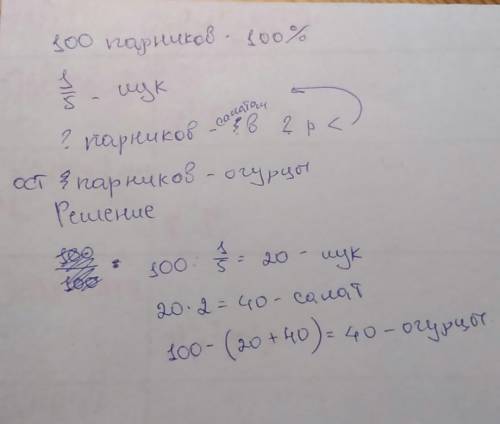 100 парников - 100%
1/5 - лук
? парников - салатом в 2 р <
ост ? парников - огурцы
Решение
100 · 1/5 = 20 - лук
20 · 2 = 40 - салат
100 - (20 + 40) = 40 - огурцы